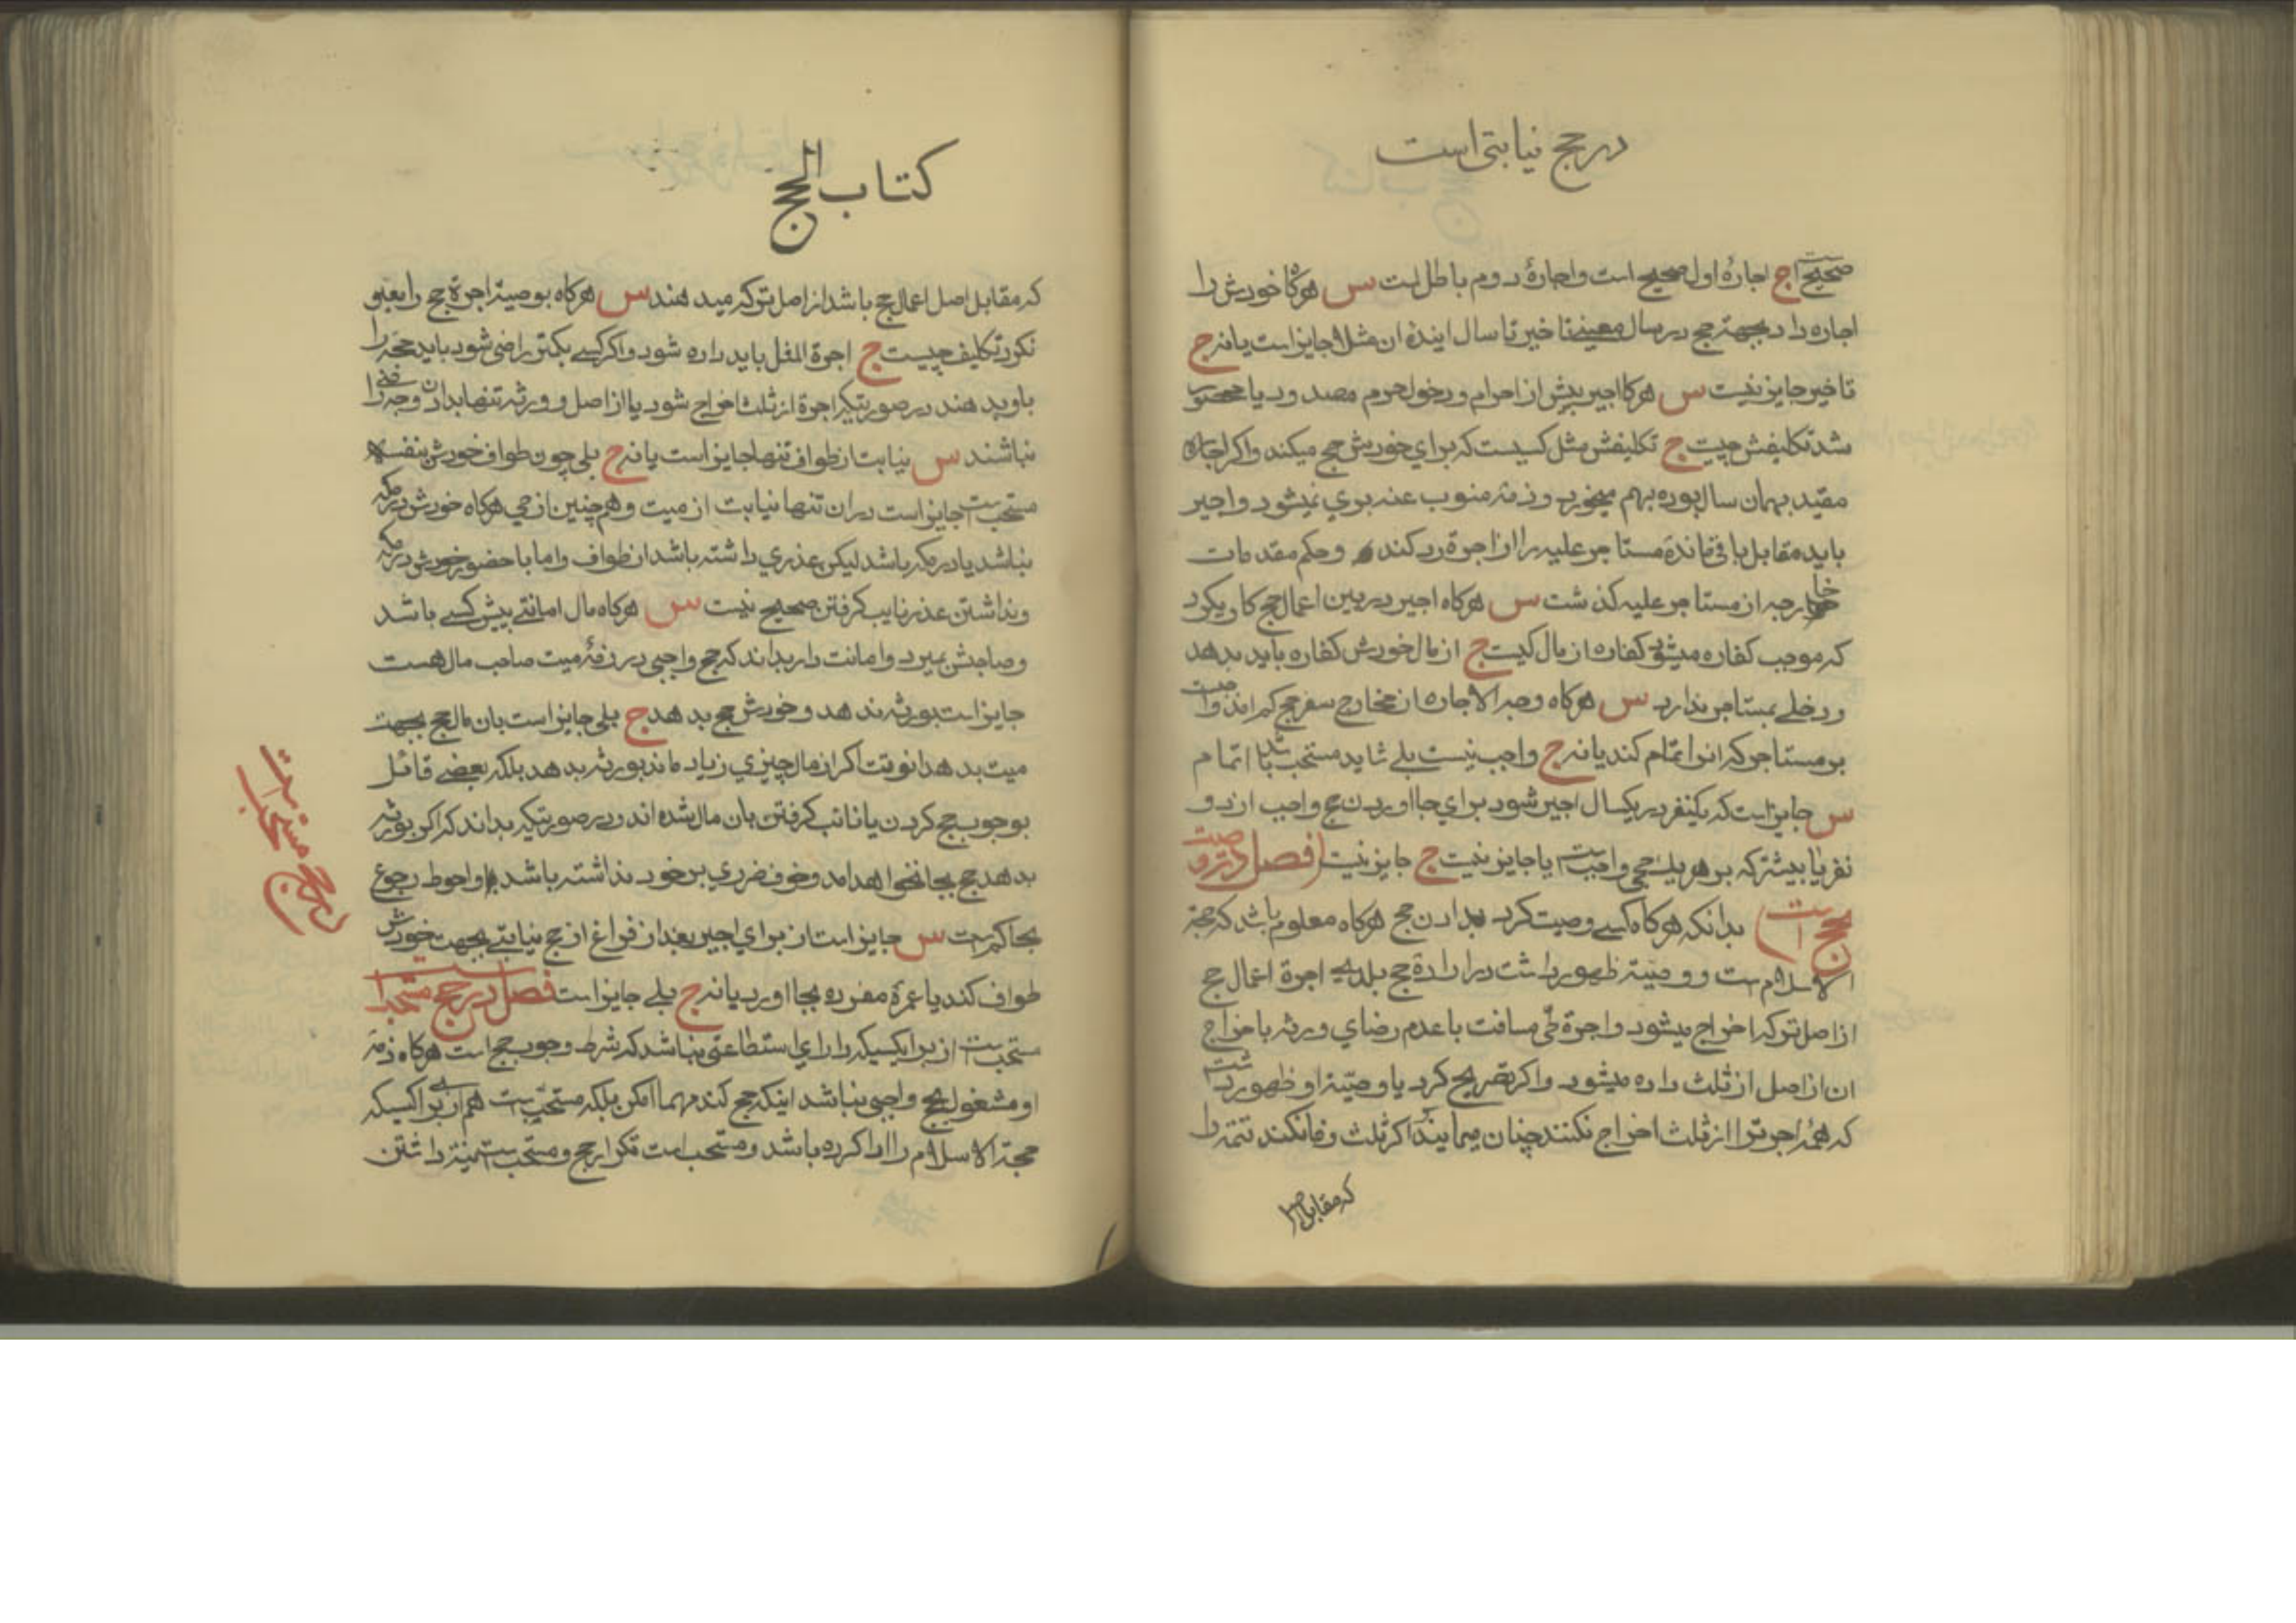 در حج نیابتی است
صحیح است ج اجارهٔ اول صحیح است و اجارهٔ دوم باطل است س هرگاه خودش را
اجاره داد بجهة حج در سال معینی تاخیر تا سال اینده ان مثلا جایز است یا نه ج
تاخیر جایز نیست س هرگاه اجیر پیش از احرام و دخول حرم مصدود یا محصور
شد تکلیفش چیست ج تکلیفش مثل کسیست که برای خودش حج میکند و اگر اجاره
مقید بهمان سال بوده بهم میخورد و ذمه منوب عنه بری نمیشود و اجیر
باید مقابل باقی مانده مستاجر علیه را از اجرة رد کند و حکم مقدمات
خارجه از مستاجر علیه گذشت س هرگاه اجیر در بین اعمال حج کاری کرد
که موجب کفاره میشود کفاره از مال کیست ج از مال خودش کفاره باید بدهد
و دخلی بمستاجر ندارد س هرگاه وجه الاجاره از مخارج سفر حج کم امد واجبست
بر مستاجر که انرا اتمام کند یا نه ج واجب نیست بلی شاید مستحب باشد اتمام
س جایز است که یکنفر در یکسال اجیر شود برای بجا اوردن حج واجب از دو
نفر یا بیشتر که بر هر یک حجی واجب است یا جایز نیست ج جایز نیست فصل در وصیت
بحج است بدانکه هرگاه کسی وصیت کرد بدادن حج هرگاه معلوم باشد که حجة
الاسلام است و وصیتة ظهور داشت در ارادة حج بلدی اجرة اعمال حج
از اصل ترکه اخراج میشود و اجرة طی مسافت با عدم رضای ورثه باخراج
ان از اصل از ثلث داده میشود و اگر تصریح کرد یا وصیتة او ظهور داشت
که همهٔ اجرتها از ثلث اخراج نکنند چنان مینمایند اگر ثلث وفا نکند تتمه را
که مقابل اصل
کتاب الحج
که مقابل اصل اعمال حج باشد از اصل ترکه میدهند س هرگاه بوصیة اجرة حج را یعنی
نکرد تکلیف چیست ج اجرة المثل باید داده شود و اگر کسی بکمتر راضی شود باید حجه را
باو بدهند در صورتیکه اجرة از ثلث اخراج شود یا از اصل و ورثه تنها بدادن وجه راضی
نباشند س نیابت از طواف تنها جایز است یا نه ج بلی چون طواف خودش بنفسه
مستحب است جایز است در ان تنها نیابت از میت و همچنین از حی هرگاه خودش در مکه
نباشد یا در مکه باشد لیکن عذری داشته باشد از طواف و اما با حضور خودش در مکه
و نداشتن عذر نایب گرفتن صحیح نیست س هرگاه مال امانتی پیش کسی باشد
و صاحبش بمیرد و امانت دار بداند که حج واجبی در ذمهٔ میت صاحب مال هست
جایز است بورثه ندهد و خودش حج بدهد ج بلی جایز است بان مال حج بجهت
میت بدهد انوقت اگر از مال چیزی زیاد ماند بورثه بدهد بلکه بعضی قائل
بوجوب حج کردن یا نائب گرفتن بان مال شده اند و در صورتیکه بداند که اگر بورثه
بدهد حج بجا نخواهد امد و خوف ضرری بر خود نداشته باشد و احوط رجوع
بحاکم است س جایز است از برای اجیر بعد از فراغ از حج نیابتی بجهت خودش
طواف کند یا عمرة مفرده بجا اورد یا نه ج بلی جایز است فصل در حج مستحب است
مستحب است از برای کسیکه دارای استطاعتی نباشد که شرط وجوب حج است هرگاه ذمهٔ
او مشغول بحج واجبی نباشد اینکه حج کند مهما امکن بلکه مستحب است هم از برای کسیکه
حجة الاسلام را ادا کرده باشد و مستحب است تکرار حج و مستحب است نیة داشتن
در حج مستحب است